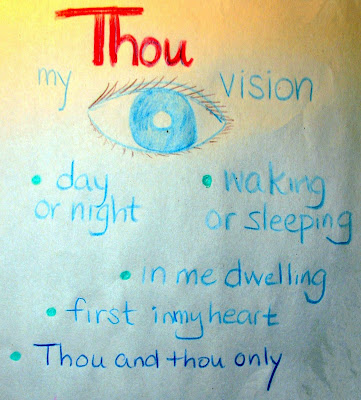 Thou
my vision
• day
or night
• waking
or sleeping
• in me dwelling
• first in my heart
• Thou and thou only